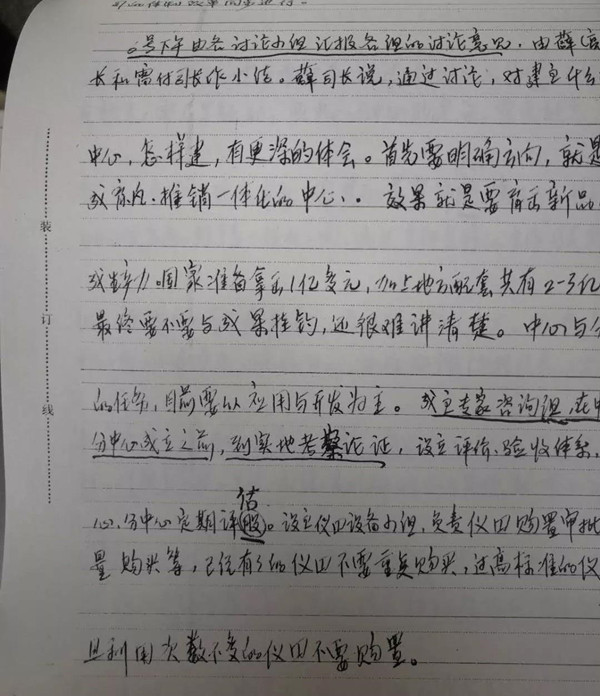 号下午由各讨论小组汇报各组的讨论意见,由薛
长和需付司长作小结。薛司长说,通过讨论,对建立什么
中心,怎样建,有更深的体会。首先要明确方向,就是
成育、推销一体化的中心、。效果就是要育出新品
装
成 。国家准备拿出1亿多元,加上地方配套共有2-3亿
订
最终要不要与成果挂钩,还很难讲清楚。中心与分
线
的任务,目前要以应用与开发为主。成立专家咨询组,在中
分中心成立之前,到实地考察论证,设立评价、验收体系,
估
心、分中心定期评 。设立仪田设备小组,负责仪田购置审批
量购买等,已经有了的仪田不要重复购买,过高标准的仪
且利用次数不多的仪田不要购置。